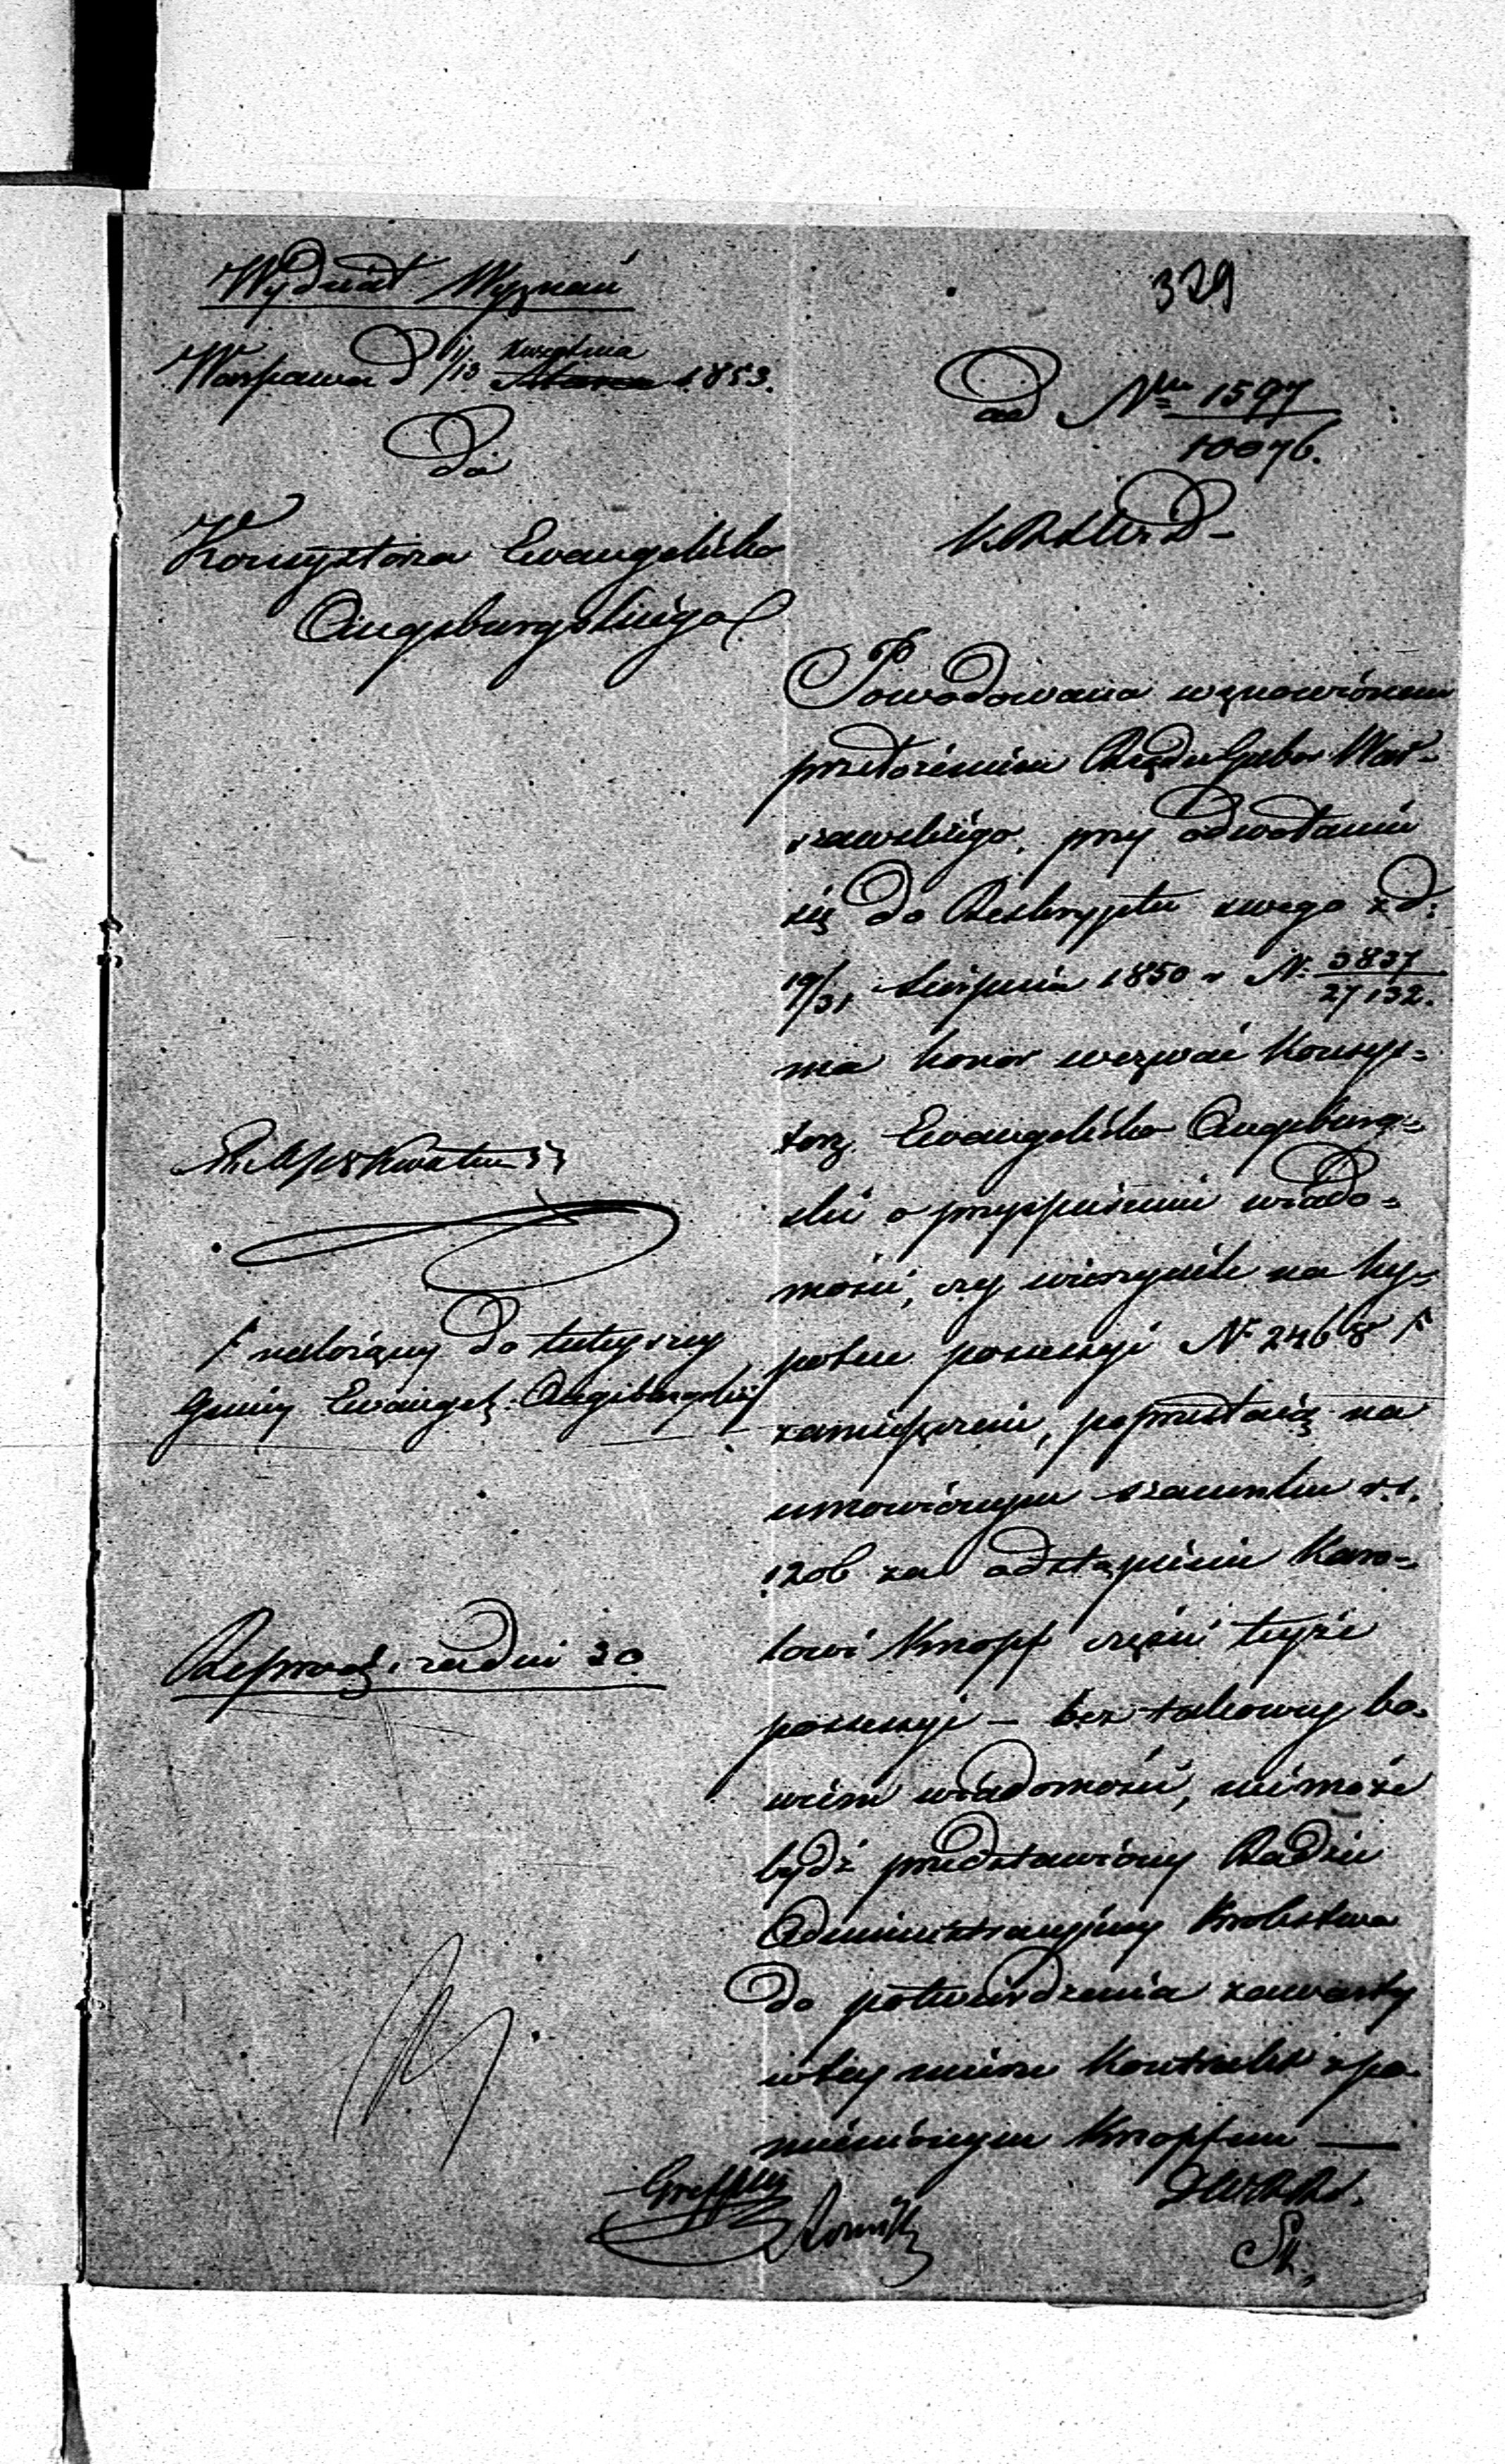 Wydział Wyznań
329
Warszawa d 1/13 Kwietnia Marca 1853.
ad Nru 1597/10076.
Do
Konsystorza Ewangelicko
Augsburgskiego
K.R.S.W.i D-
Powodowana wznowionem
przełożeniem Rządu Guber. War-
szawskiego, przy odwołaniu
się do Reskryptu swego z d:
19/31 Sierpnia 1850 r N. 3837/27132.
ma honor wezwać Konsys-
torz Ewangelicko Augsburg-
ski o przyspieszenie wiado-
mości, czy wierzyciele na hy-
potece possessyi N 2468 F
zamieszczeni, poprzestają na
umówionym szacunku r.s.
1206 za odstąpienie Karo-
lowi Knopf części tejże
possessyi – bez takowej bo-
wiem wiadomości, nie może
bydź przedstawiony Radzie
Administracyjnej Królestwa
do potwierdzenia zawarty
w tej mierze kontrakt z po
mienionym Knopfem —
Kwietnia 53
F należącej do tutejszej
Gminy Ewangel. Augsburgskiej
Reprod. za dni 30
D.W.R.R.S.